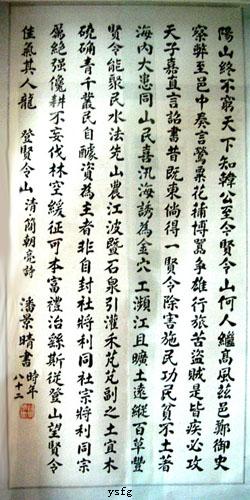 陽山終不窮天下知韓公至今賢令山何人繼高風茲邑鄭御史
察弊至邑中奏言鶯粟花補博罵手雄行旅苦盜賊是皆疾必攻
天子嘉直言詔書昔既東倘得一賢令除害施民功民貧不土著
海内大患同山民喜汎海誘為金穴工瀕江且曠土遠縱百草豐
賢令能聚民水法先山農江波暨石泉引灌禾芃芃副之土宜木
磽确青千叢民自釀資為主者非自封社將利同社宗將利同宗
屬絶强儳耕不妄伐林空緩征可本富禮治繇斯從登山望賢令
佳氣其人龍 登賢令山 清簡朝亮詩 潘景晴書 時年
八十二
ysfg